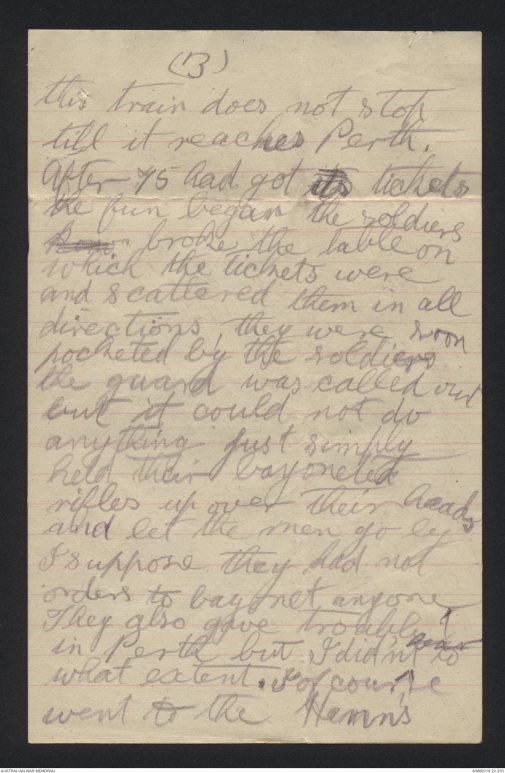 (13)
this train does not stop
till it reaches Perth.
After 45 had got its tickets
the fun began the soldiers
broke the table on
which the tickets were
and scattered them in all
directions they were soon
pocketed by the soldiers
the guard was called out
but it could not do
anything just simply
held their bayoneted
rifles up over their heads
and let the men go by
I suppose they had not
orders to bayonet anyone
They also gave trouble
in Perth but I didn't hear to
what extent. I of course
went to the Hann's
AUSTRALIAN WAR MEMORIAL